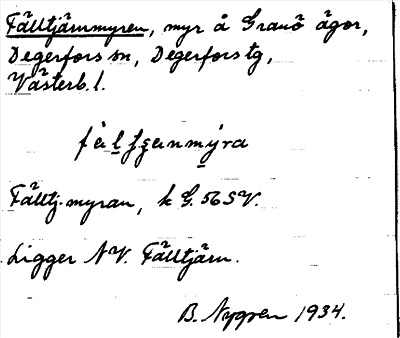 Fälltjärnmyren, myr å Granö ägor,
Degerfors sn, Degerfors tg,
Västerb. l.
Fälltj.myran, k G. 56 SV.
Ligger NV. Fälltjärn.
B. Nygren 1934.